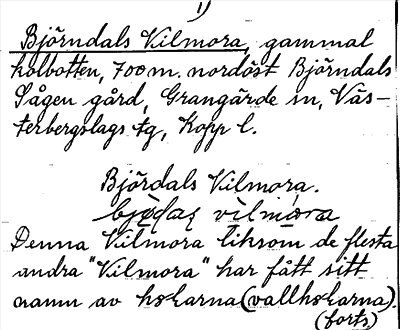 1)
Björndals Kilmora, gammal
kolbotten, 700 m. nordöst Björndals
Sågen gård, Grangärde sn, Väs-
terbergslags tg, Kopp l.
Björdals Kilmora.
Denna Kilmora liksom de flesta
andra "Kilmora" har fått sitt
namn av hskarna (vallhskarna).
(forts)